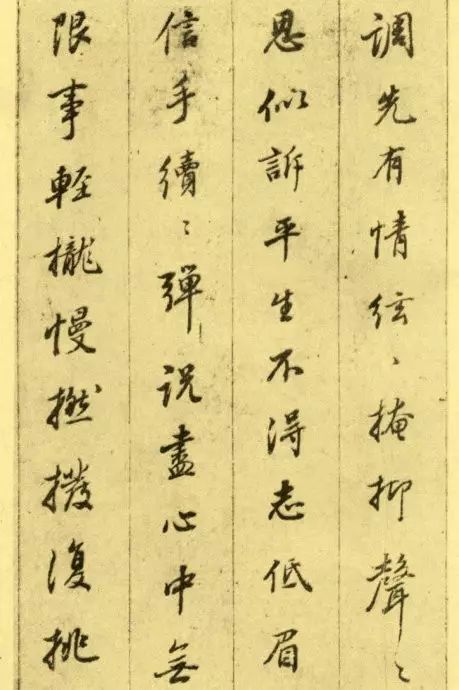 調先有情絃〻掩抑聲〻
思似訴平生不得志低眉
信手續〻彈説盡心中無
限事輕攏慢撚撥復挑